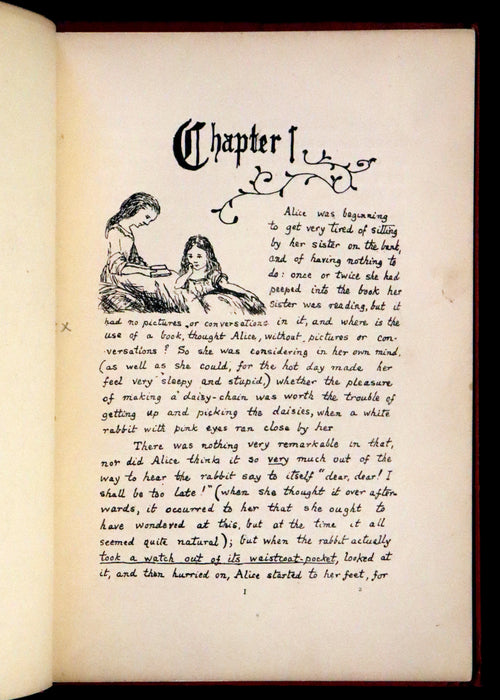 Chapter I
Alice was beginning
to get very tired of sitting
by her sister on the bank,
and of having nothing to
do: once or twice she had
peeped into the book her
sister was reading, but it
had no pictures or conversations in it, and where is the
use of a book, thought Alice, without pictures or con-
versations? So she was considering in her own mind,
(as well as she could, for the hot day made her
feel very sleepy and stupid,) whether the pleasure
of making a daisy-chain was worth the trouble of
getting up and picking the daisies, when a white
rabbit with pink eyes ran close by her
There was nothing very remarkable in that,
nor did Alice think it so very much out of the
way to hear the rabbit say to itself "dear, dear! I
shall be too late!" (when she thought it over after-
wards, it occurred to her that she ought to
have wondered at this, but at the time it all
seemed quite natural); but when the rabbit actually
took a watch out of its waistcoat-pocket, looked at
it, and then hurried on, Alice started to her feet, for
1